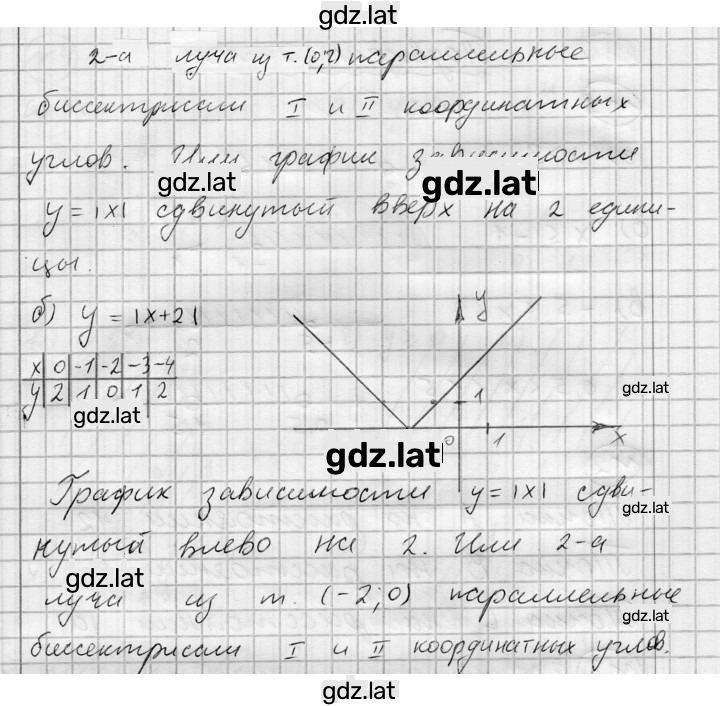 gdz.lat
2-а луча из т. (0;2) параллельные
биссектрисам I и II координатных
углов. Или график зависимости
gdz.lat gdz.lat
y = |x| сдвинутый вверх на 2 едини-
цы.
б) y = |x+2|
y
x 0 -1 -2 -3 -4
y 2 1 0 1 2
gdz.lat
gdz.lat
1
0 1 x
gdz.lat
График зависимости y = |x| сдви-
gdz.lat
нутый влево на 2. Или 2-а
gdz.lat
луча из т. (-2;0) параллельные
gdz.lat
биссектрисам I и II координатных углов.
gdz.lat